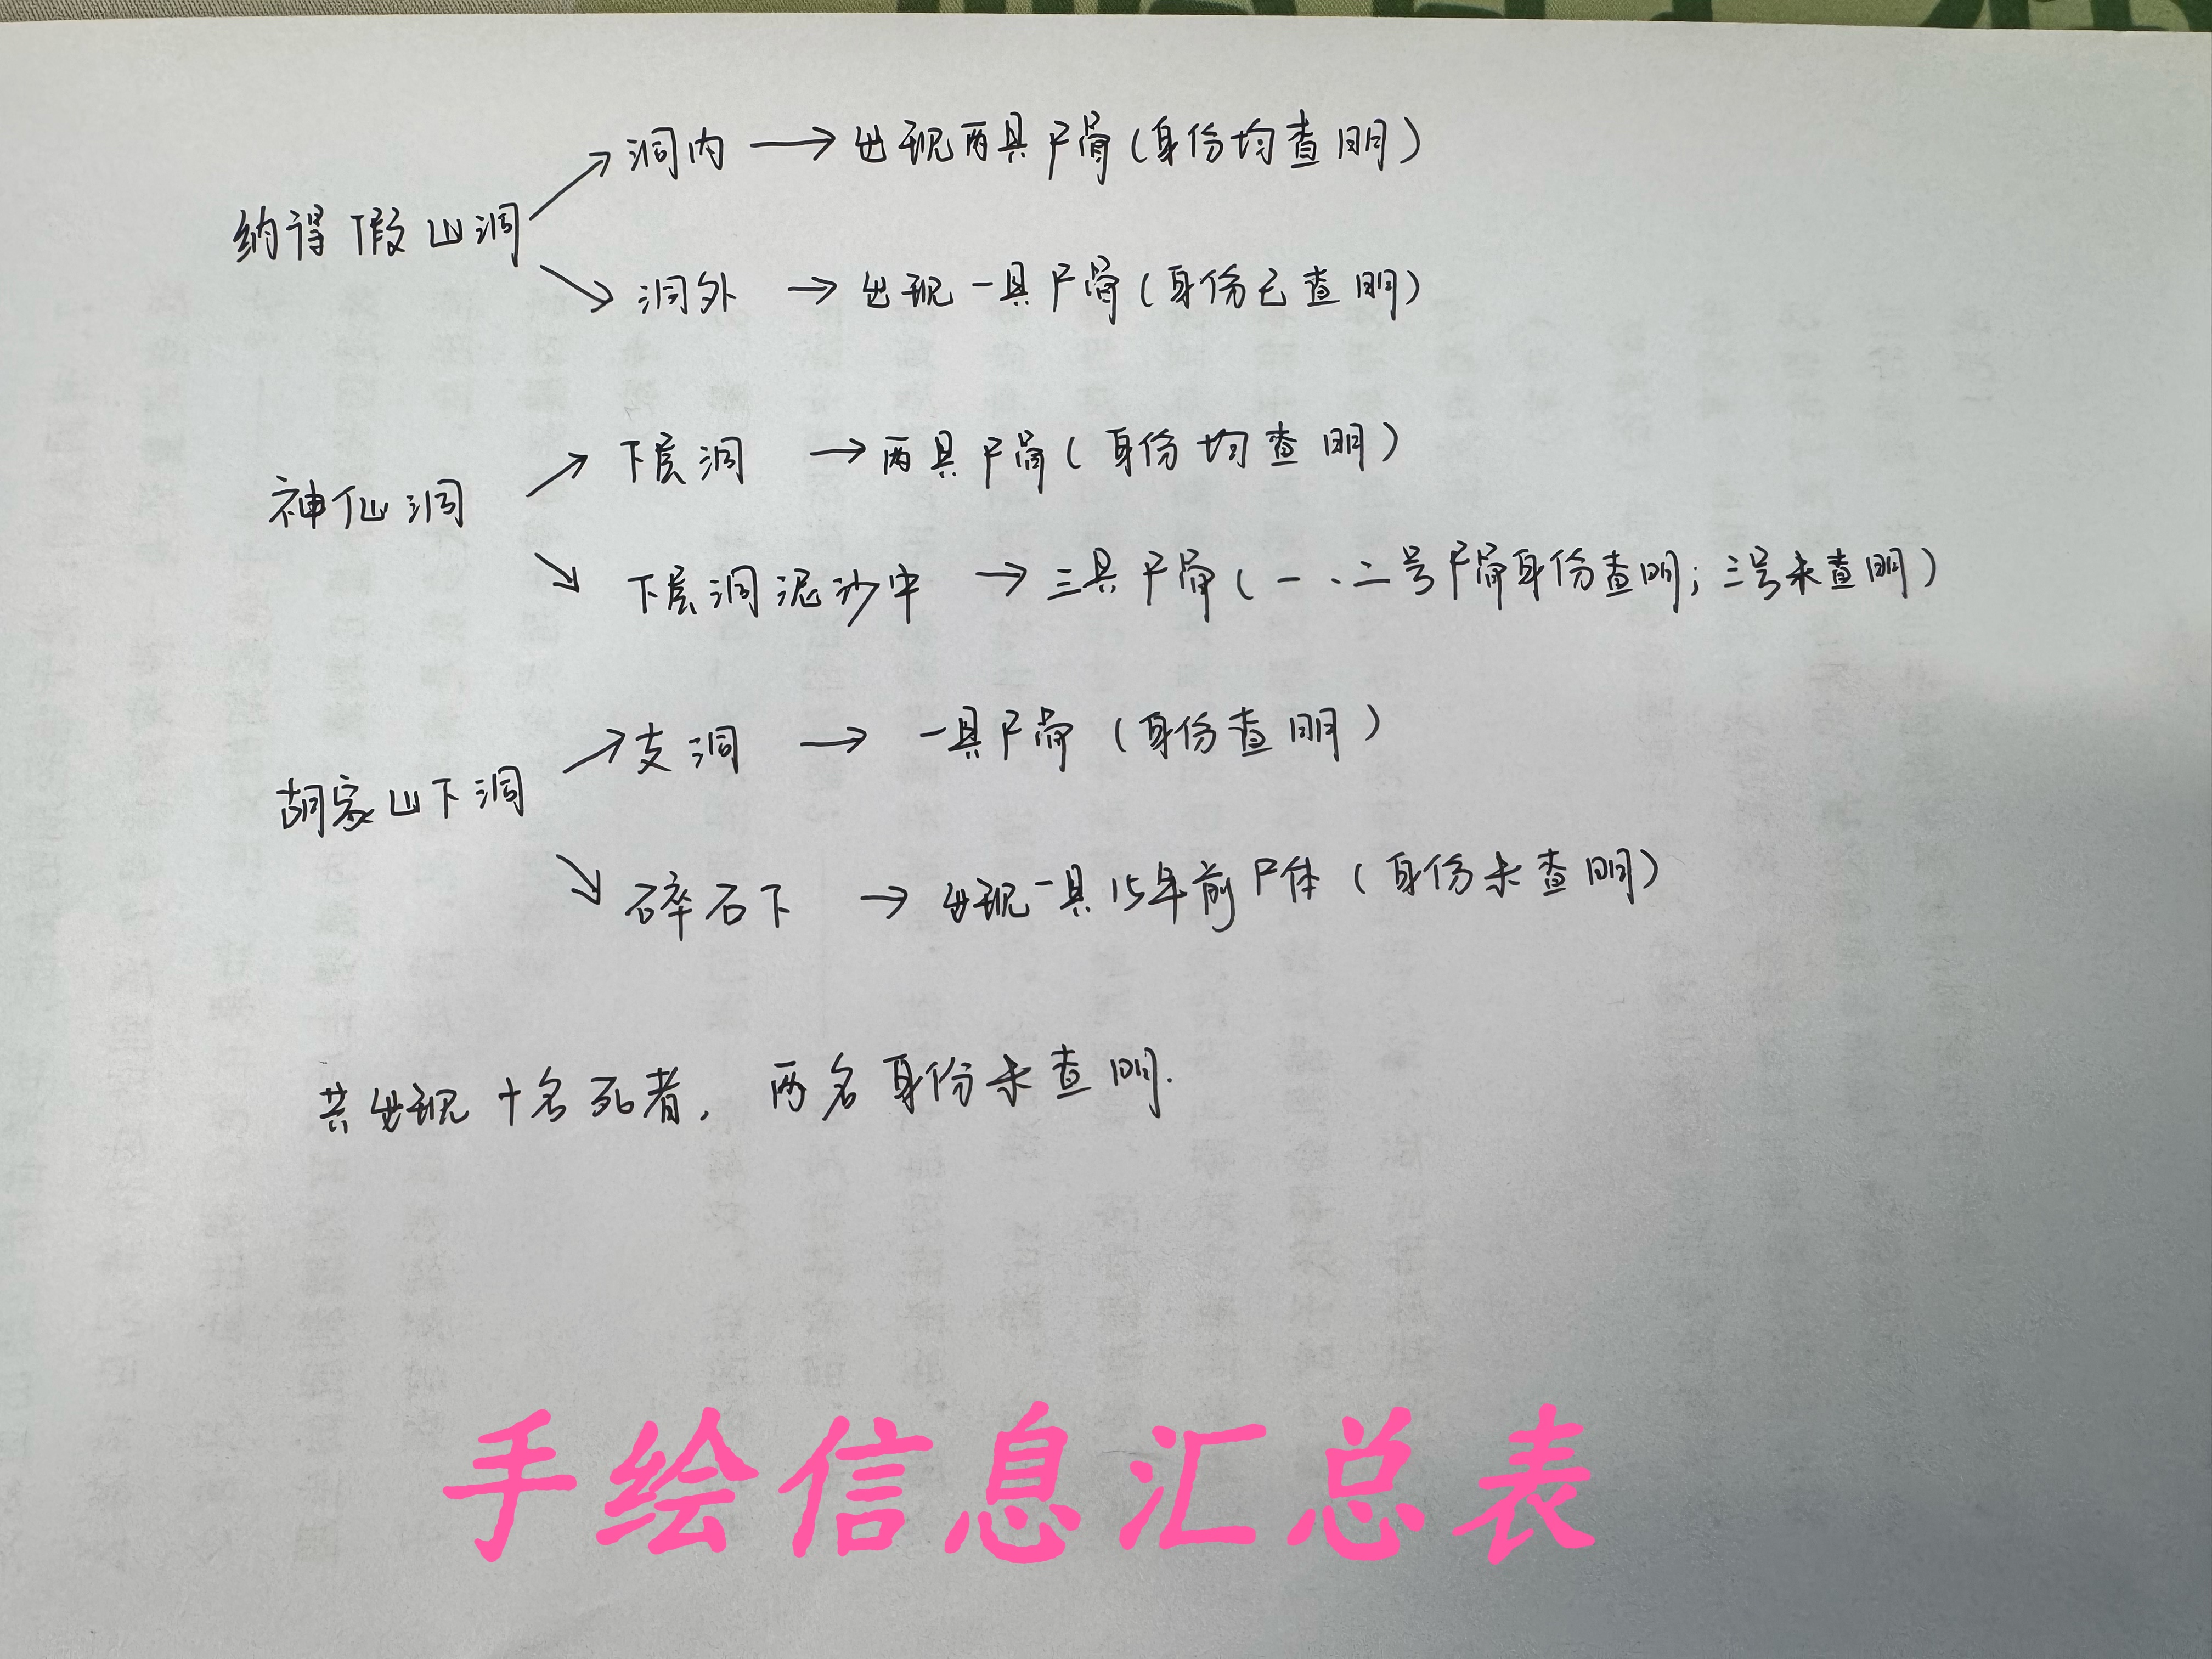 纳得假山洞
洞内 → 出现两具尸骨(身份均查明)
洞外 → 出现一具尸骨(身份已查明)
神仙洞
下层洞 → 两具尸骨(身份均查明)
下层洞泥沙中 → 三具尸骨(一、二号尸骨身份查明;三号未查明)
胡家山下洞
支洞 → 一具尸骨(身份查明)
碎石下 → 出现一具15年前尸体(身份未查明)
共出现十名死者,两名身份未查明.
手绘信息汇总表